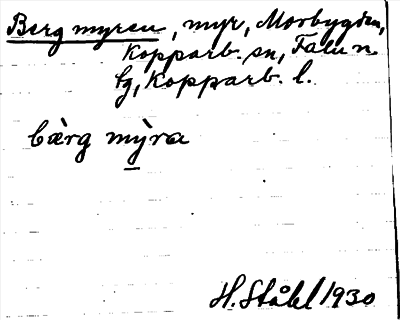 Bergmyren, myr, Morbygden,
Kopparb. sn, Falu n.
tg, Kopparb. l.
bàrg mỳra
H. Ståhl 1930